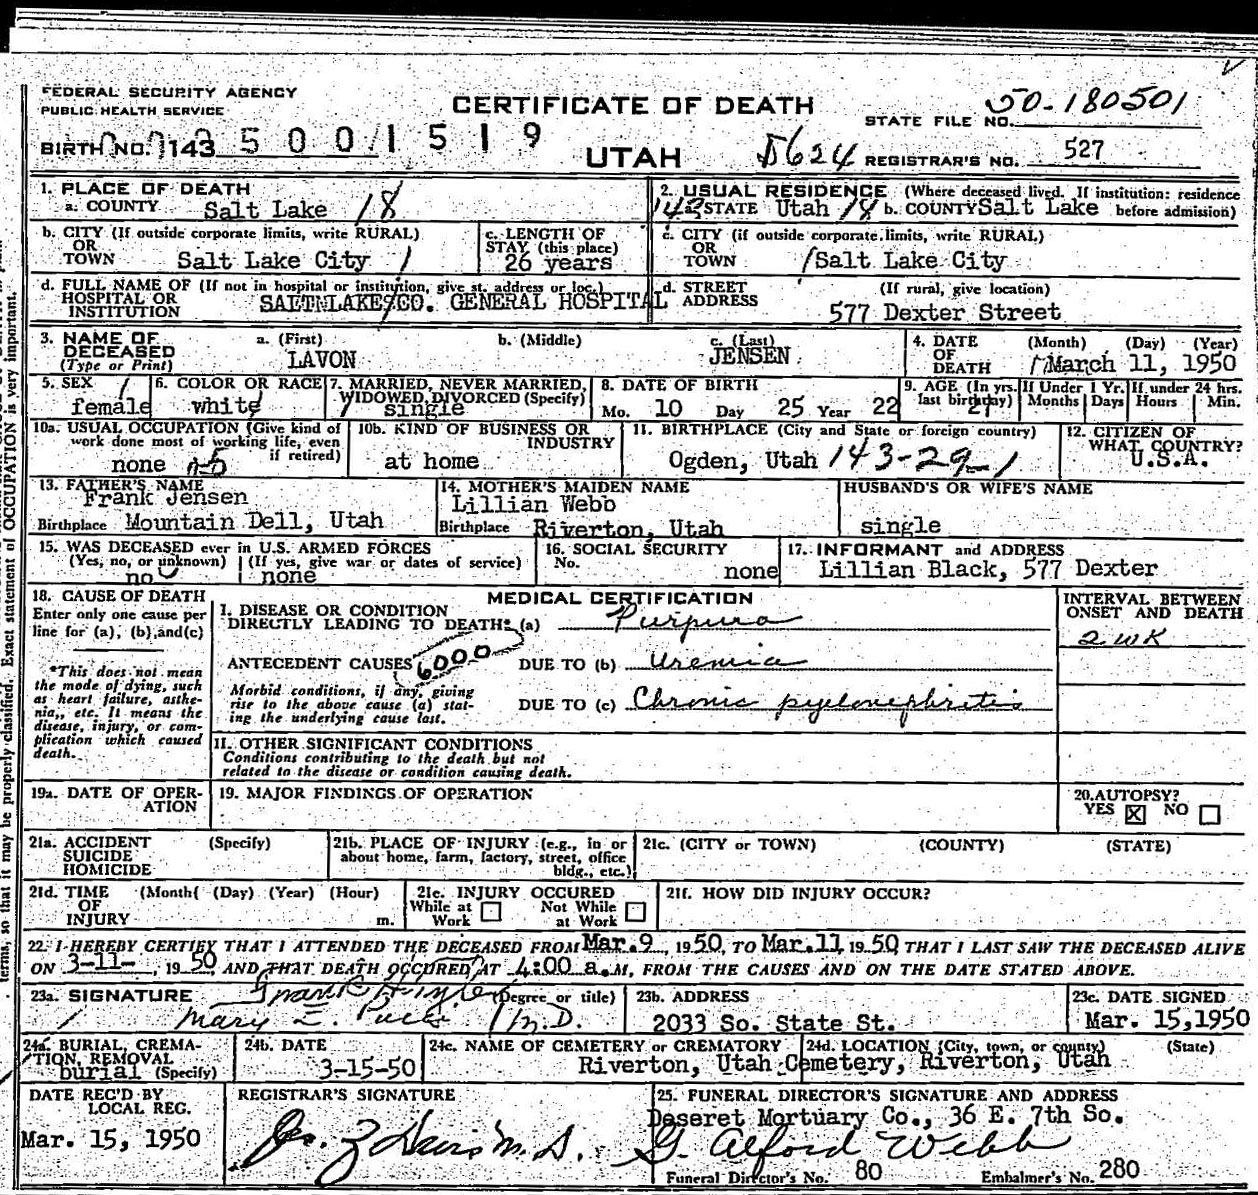 FEDERAL SECURITY AGENCY
PUBLIC HEALTH SERVICE
CERTIFICATE OF DEATH
STATE FILE NO. 50-180501
BIRTH NO. 143 500/1519
UTAH
8624 REGISTRAR'S NO. 527
1. PLACE OF DEATH
a. COUNTY Salt Lake 18
2. USUAL RESIDENCE (Where deceased lived. If institution: residence before admission)
143 a. STATE Utah 18 b. COUNTY Salt Lake
b. CITY (If outside corporate limits, write RURAL)
OR TOWN Salt Lake City 1
c. LENGTH OF STAY (this place)
26 years
c. CITY (if outside corporate limits, write RURAL)
OR TOWN Salt Lake City
d. FULL NAME OF (If not in hospital or institution, give st. address or loc.)
HOSPITAL OR INSTITUTION SALT LAKE CO. GENERAL HOSPITAL
d. STREET ADDRESS (If rural, give location)
577 Dexter Street
3. NAME OF DECEASED (Type or Print)
a. (First) LAVON
b. (Middle)
c. (Last) JENSEN
4. DATE OF DEATH (Month) (Day) (Year)
March 11, 1950
5. SEX
female
6. COLOR OR RACE
white
7. MARRIED, NEVER MARRIED, WIDOWED, DIVORCED (Specify)
single
8. DATE OF BIRTH
Mo. 10 Day 25 Year 22
9. AGE (In yrs. last birthday)
27
If Under 1 Yr. Months Days
If under 24 hrs. Hours Min.
10a. USUAL OCCUPATION (Give kind of work done most of working life, even if retired)
none
10b. KIND OF BUSINESS OR INDUSTRY
at home
11. BIRTHPLACE (City and State or foreign country)
Ogden, Utah 143-29-1
12. CITIZEN OF WHAT COUNTRY?
U.S.A.
13. FATHER'S NAME
Frank Jensen
Birthplace Mountain Dell, Utah
14. MOTHER'S MAIDEN NAME
Lillian Webb
Birthplace Riverton, Utah
HUSBAND'S OR WIFE'S NAME
single
15. WAS DECEASED ever in U.S. ARMED FORCES
(Yes, no, or unknown) (If yes, give war or dates of service)
no none
16. SOCIAL SECURITY No.
none
17. INFORMANT and ADDRESS
Lillian Black, 577 Dexter
18. CAUSE OF DEATH
Enter only one cause per line for (a), (b), and (c)
*This does not mean the mode of dying, such as heart failure, asthenia, etc. It means the disease, injury, or complication which caused death.
MEDICAL CERTIFICATION
I. DISEASE OR CONDITION DIRECTLY LEADING TO DEATH: (a) Purpura
ANTECEDENT CAUSES 6000 DUE TO (b) Uremia
Morbid conditions, if any, giving rise to the above cause (a) stating the underlying cause last.
DUE TO (c) Chronic pyelonephritis
INTERVAL BETWEEN ONSET AND DEATH
2 wk
II. OTHER SIGNIFICANT CONDITIONS
Conditions contributing to the death but not related to the disease or condition causing death.
19a. DATE OF OPERATION
19. MAJOR FINDINGS OF OPERATION
20. AUTOPSY?
YES X NO
21a. ACCIDENT SUICIDE HOMICIDE (Specify)
21b. PLACE OF INJURY (e.g., in or about home, farm, factory, street, office bldg., etc.)
21c. (CITY or TOWN) (COUNTY) (STATE)
21d. TIME OF INJURY (Month) (Day) (Year) (Hour) m.
21e. INJURY OCCURED
While at Work Not While at Work
21f. HOW DID INJURY OCCUR?
22. I HEREBY CERTIFY THAT I ATTENDED THE DECEASED FROM Mar. 9, 1950, TO Mar. 11 1950 THAT I LAST SAW THE DECEASED ALIVE
ON 3-11-, 1950 AND THAT DEATH OCCURED AT 4:00 a.M, FROM THE CAUSES AND ON THE DATE STATED ABOVE.
23a. SIGNATURE (Degree or title)
Mary M.D.
23b. ADDRESS
2033 So. State St.
23c. DATE SIGNED
Mar. 15, 1950
24a. BURIAL, CREMATION, REMOVAL (Specify)
burial
24b. DATE
3-15-50
24c. NAME OF CEMETERY or CREMATORY
24d. LOCATION (City, town, or county) (State)
Riverton, Utah Cemetery, Riverton, Utah
DATE REC'D BY LOCAL REG.
Mar. 15, 1950
REGISTRAR'S SIGNATURE
M.D.
25. FUNERAL DIRECTOR'S SIGNATURE AND ADDRESS
Deseret Mortuary Co., 36 E. 7th So.
G. Alford Webb
Funeral Director's No. 80 Embalmer's No. 280
terms, so that it may be properly classified. Exact statement of OCCUPATION is very important.